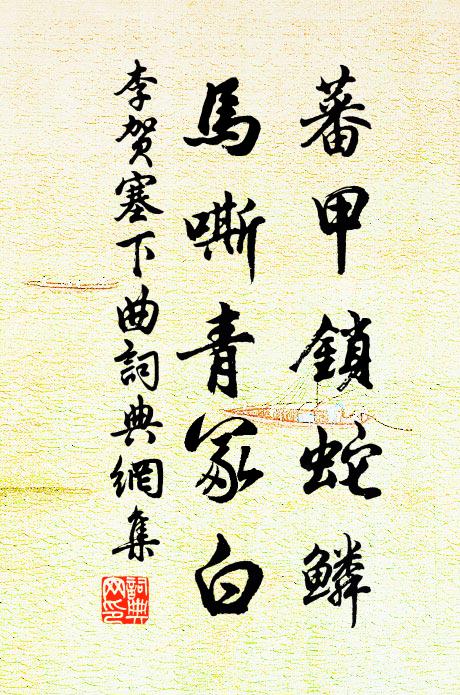 蕃甲鎖蛇鱗
馬嘶青冢白
李賀塞下曲詞典網集
詞典網印